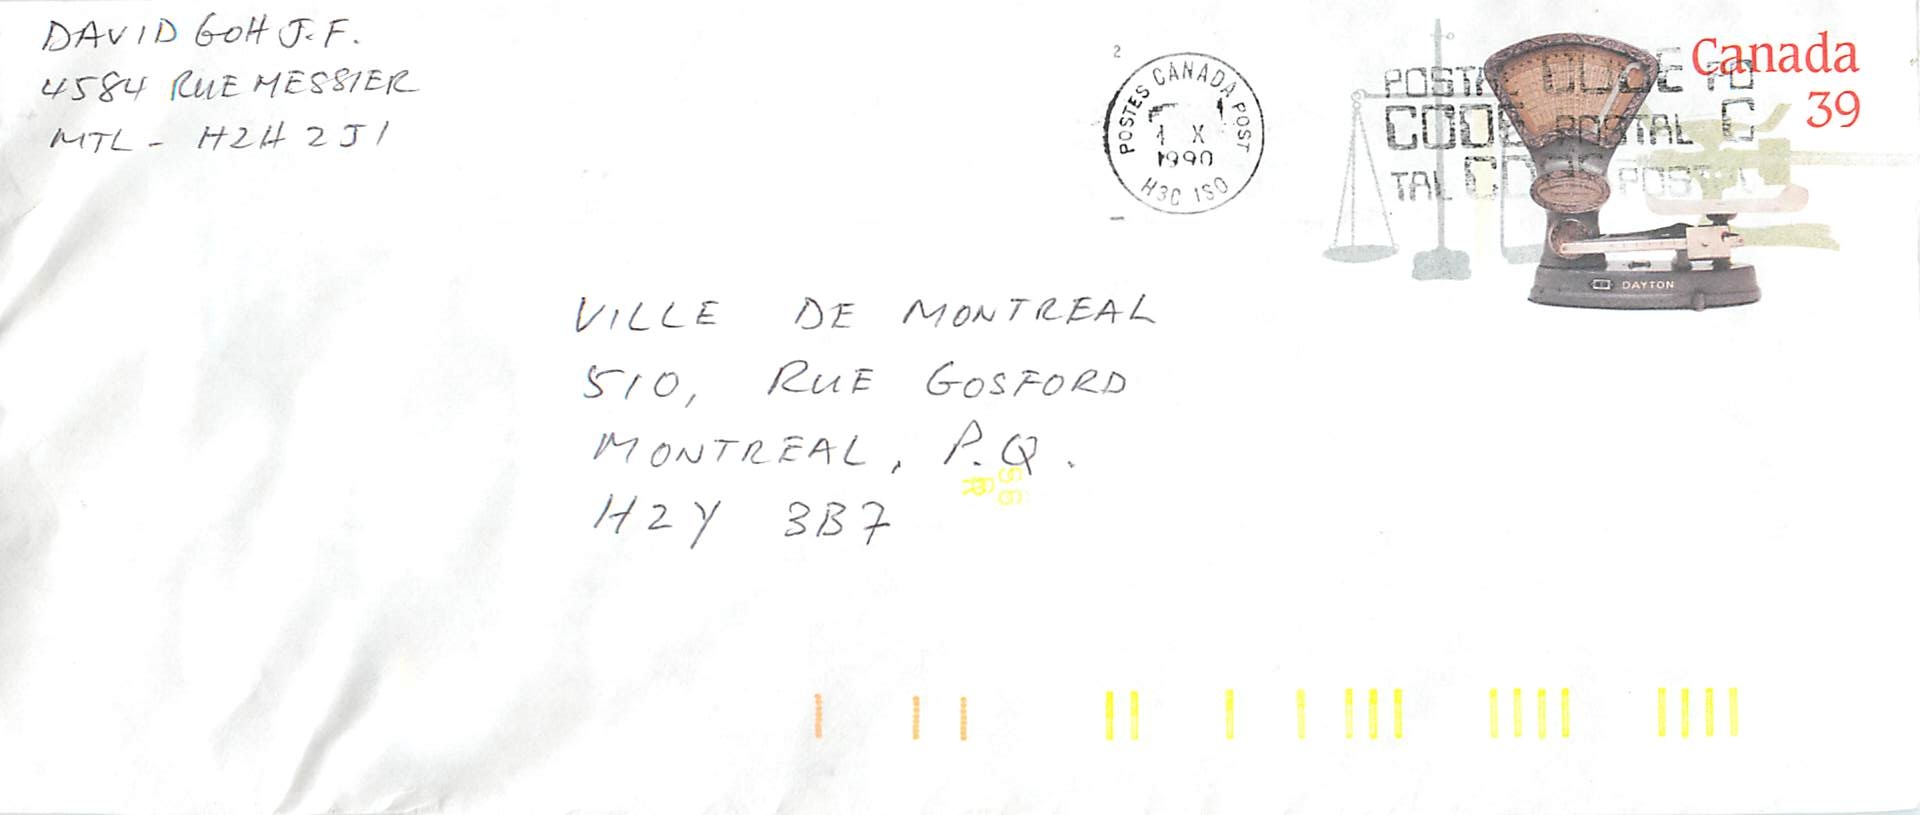 DAVID GOH J.F.
4584 RUE MESSIER
MTL - H2H 2J1
2
POSTES CANADA POST
1 X
1990
H3C 1S0
Canada
39
POSTAL CODE PO
CODE POSTAL C
TAL CODE POSTAL
DAYTON
VILLE DE MONTREAL
510, RUE GOSFORD
MONTREAL, P.Q.
H2Y 3B7